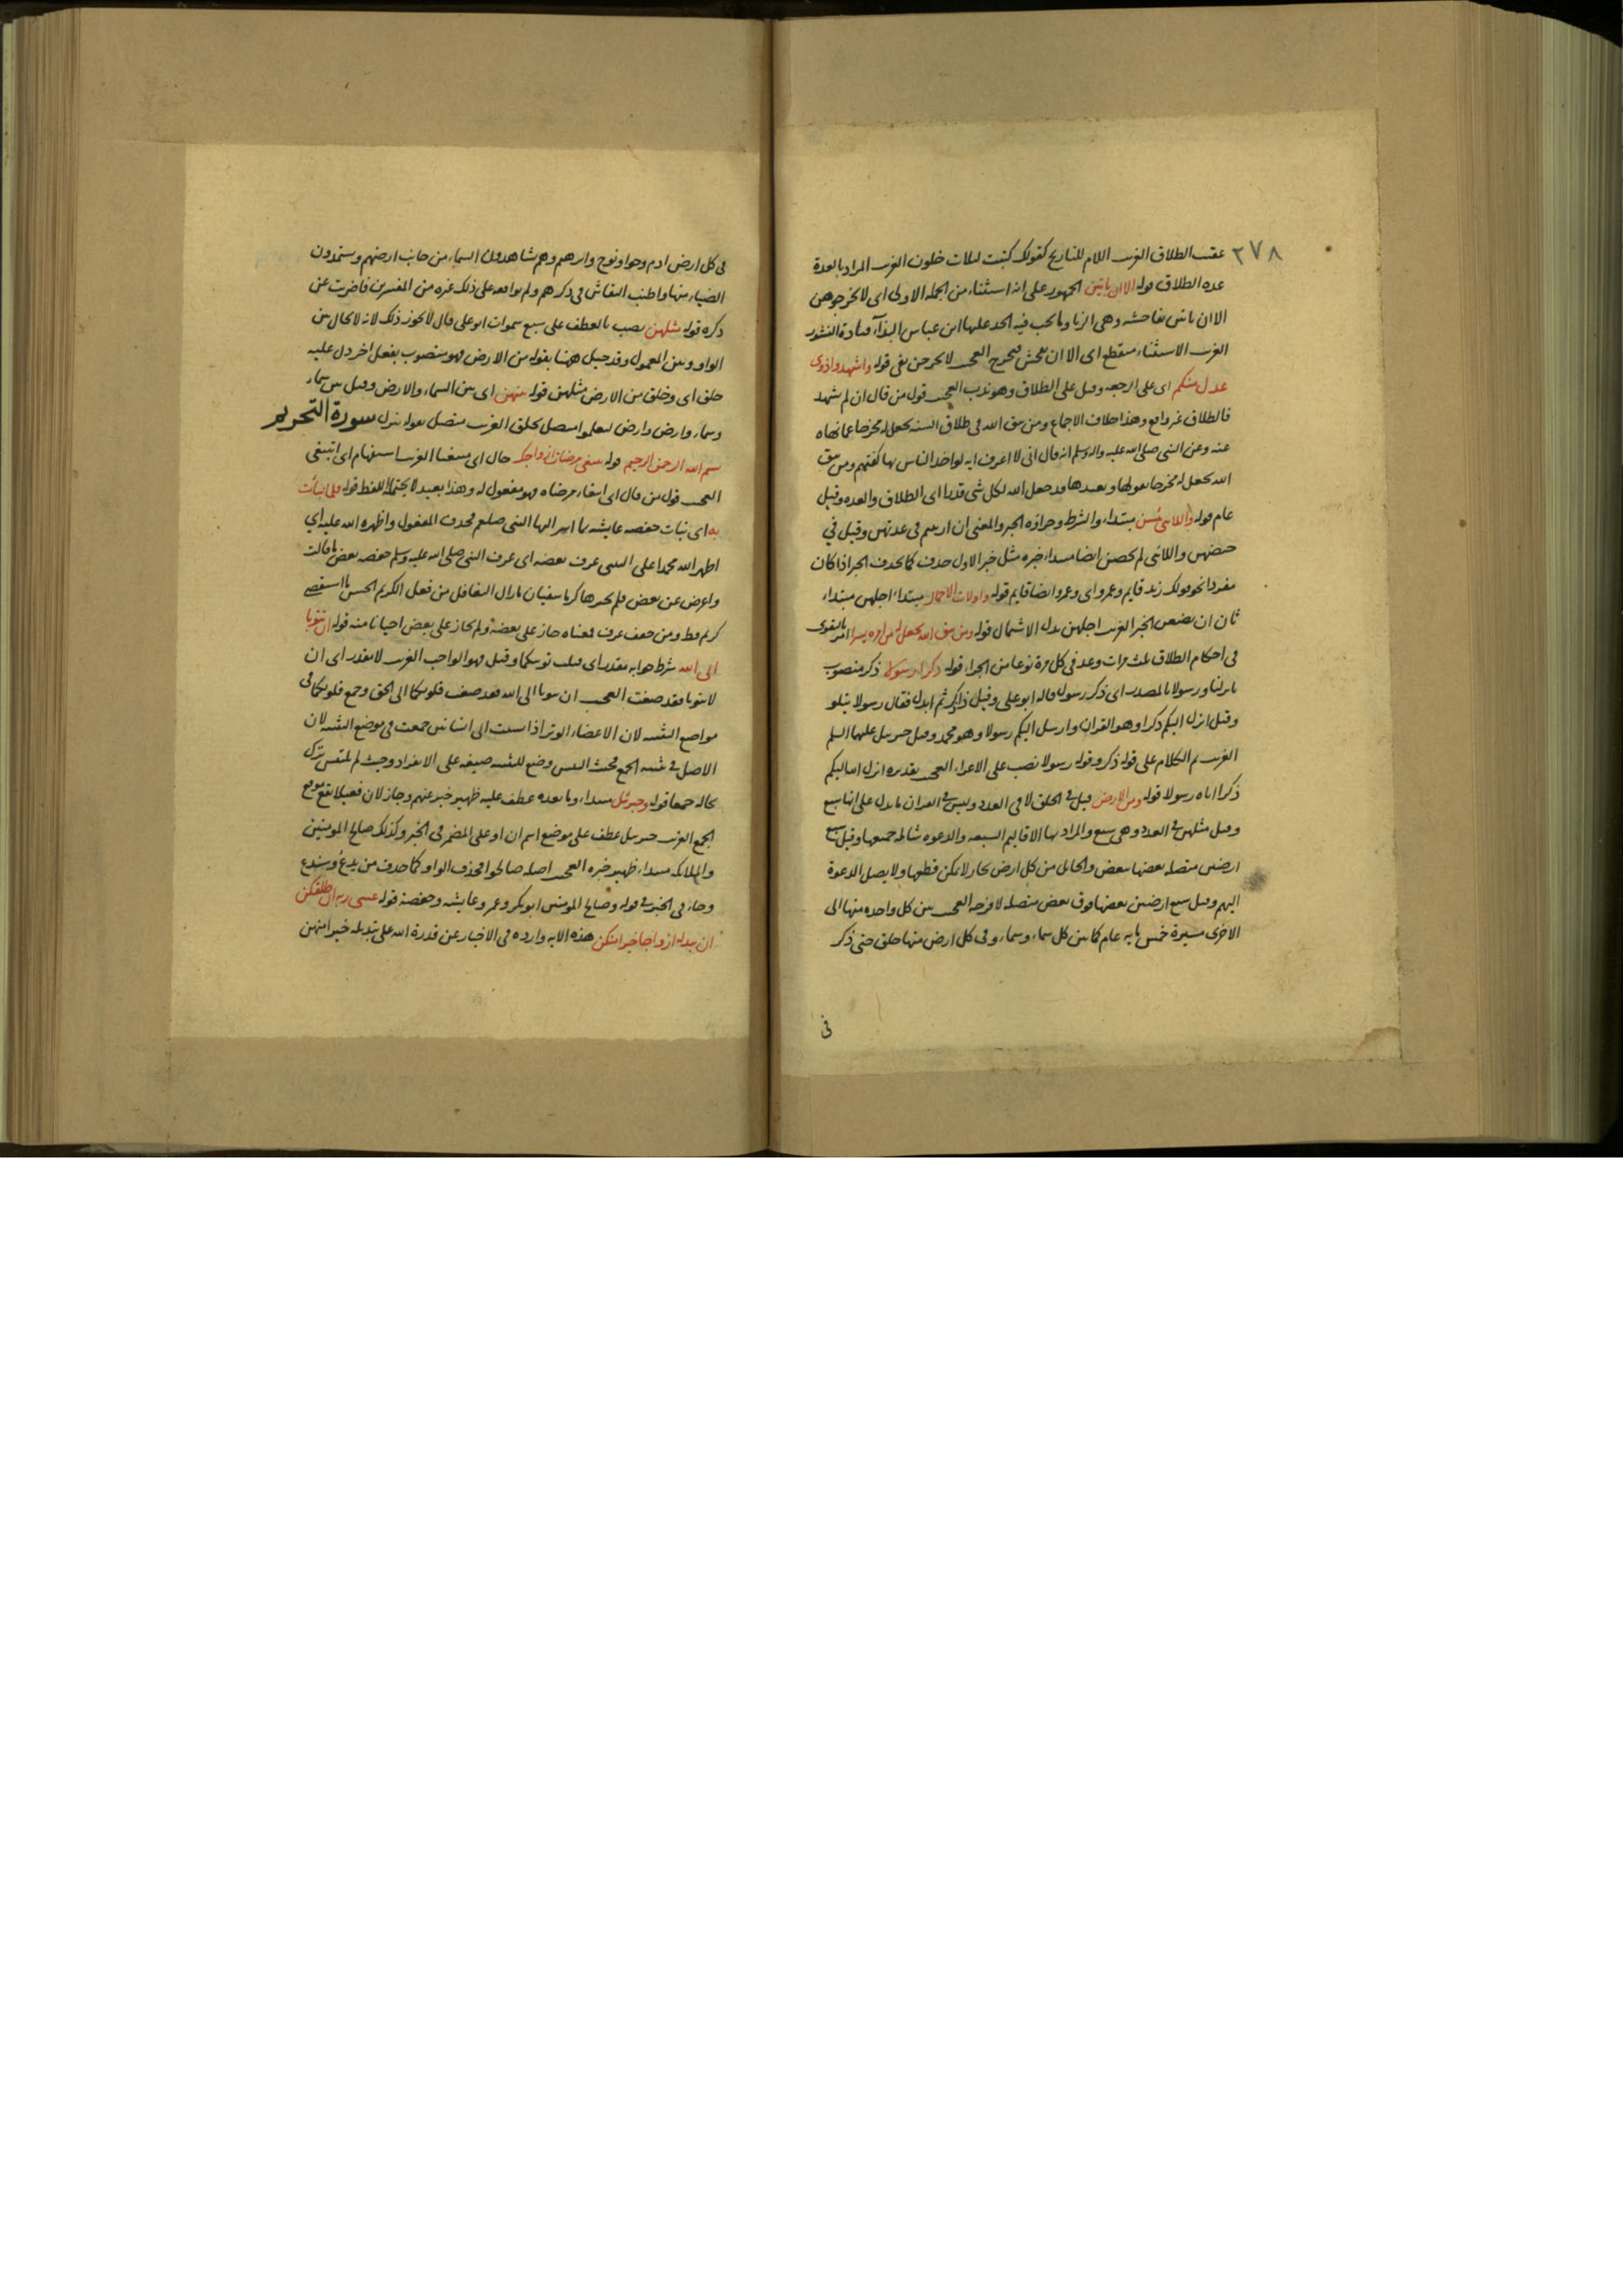 ٢٧٨
عقب الطلاق الغرب اللام للتاريخ كقولك كتبت لثلاث خلون الغرب المراد بالعدة
عدة الطلاق قوله الا ان ياتين الجمهور على انه استثناء من الجملة الاولى اى لا تخرجوهن
الا ان ياتين بفاحشة وهى الزنا وما يجب فيه الحد عليها ابن عباس البذاء قتادة النشوز
الغرب الاستثناء منقطع اى الا ان يفحش فتخرج العجب لا يخرجن قوله واشهدوا ذوى
عدل منكم اى على الرجعة وقيل على الطلاق وهو ندب العجب قول من قال ان لم يشهد
فالطلاق غير واقع وهذا خلاف الاجماع ومن يتق الله فى طلاق السنة يجعل له مخرجا عما نهاه
عنه وعن النبى صلى الله عليه واله وسلم انه قال انى لا اعرف اية لو اخذ الناس بها لكفتهم ومن يتق
الله يجعل له مخرجا يقولها ويعيدها قد جعل الله لكل شى قدرا اى الطلاق والعدة وقيل
عام قوله واللائى يئسن مبتداء والشرط وجزاؤه الخبر والمعنى ان ارتبتم فى عدتهن وقيل فى
حيضهن واللائى لم يحضن ايضا مبتداء خبره مثل خبر الاول حذف كما يحذف الخبر اذا كان
مفردا نحو قولك زيد قايم وعمرو اى وعمرو ايضا قايم قوله واولات الاحمال مبتداء اجلهن مبتداء
ثان ان يضعن الخبر الغرب اجلهن بدل الاشتمال قوله ومن يتق الله يجعل له من امره يسرا امر بالتقوى
فى احكام الطلاق ثلث مرات وعد فى كل مرة نوعا من الجزاء قوله ذكرا رسولا ذكر منصوب
بانزلنا ورسولا بالمصدر اى ذكر رسول قاله ابو على وقيل ذاكر ثم ابدل فقال رسولا يتلو
وقيل انزل اليكم ذكرا وهو القران وارسل اليكم رسولا وهو محمد وقيل جبريل عليهما السلم
الغرب تم الكلام على قوله ذكر وقوله رسولا نصب على الاغراء العجب تقديره انزل الله اليكم
ذكرا اتاه رسولا قوله ومن الارض قيل فى الخلق لا فى العدد وليس فى القران ما يدل على انها سبع
وقيل مثلهن فى العدد وهى سبع والمراد بها الاقاليم السبعة والدعوة شاملة جميعها وقيل سبع
ارضين متصلة بعضها ببعض والحائل من كل ارض بحار لا يمكن قطعها ولا يصل الدعوة
اليهم وقيل سبع ارضين بعضها فوق بعض متصلة لا فرجة العجب بين كل واحدة منها الى
الاخرى مسيرة خمس ماية عام كما بين كل سماء وسماء وفى كل ارض منها خلق حتى ذكر
فى
فى كل ارض ادم وحوا ونوح وابرهيم وهم شاهدون السماء من جانب ارضهم ويستمدون
الضياء منها واطنب النقاش فى ذكرهم ولم يوافقه على ذلك غيره من المفسرين فاضربت عن
ذكره قوله مثلهن نصب بالعطف على سبع سموات ابو على قال لا يجوز ذلك لانه لا يحال بين
الواو وبين المعمول وقد حيل ههنا بقوله من الارض فهو منصوب بفعل اخر دل عليه
خلق اى وخلق من الارض مثلهن قوله بينهن اى بين السماء والارض وقيل بين سماء
وسماء وارض وارض لتعلموا متصل بخلق الغرب متصل بقوله يتنزل سورة التحريم
بسم الله الرحمن الرحيم قوله تبتغى مرضات ازواجك حال اى مبتغيا الغرب استفهام اى اتبتغى
العجب قول من قال اى ابتغاء مرضاة فهو مفعول له وهذا بعيد لا يحتمله اللفظ قوله فلما نبأت
به اى نبات حفصة عايشة بما اسر اليها النبى صلعم فحذف المفعول واظهره الله عليه اى
اظهر الله محمدا على النبى عرف بعضه اى عرف النبى صلى الله عليه وسلم حفصة بعض ما قالت
واعرض عن بعض فلم يخبرها كرما سفيان ما زال التغافل من فعل الكريم الحسن ما استقصى
كريم قط ومن خفف عرف فمعناه جاز على بعضه ولم يجاز على بعض احيانا منه قوله ان تتوبا
الى الله شرط جوابه مقدر اى قبلت توبتكما وقيل فهو الواجب الغرب لا مقدر اى ان
لا تتوبا فقد صغت العجب ان تتوبا الى الله فقد صغت قلوبكما الى الحق وجمع قلوبكما فى
مواضع التثنية لان الاعضاء الوتر اذا نسبت الى انسانين جمعت فى موضع التثنية لان
الاصل فى تثنية الجمع فحيث اللبس وضع للتثنية صيغة على الانفراد وحيث لم يلتبس ترك
بحاله جمعا قوله وجبرئل مبتداء وما بعده عطف عليه ظهير خبر عنهم وجاز لان فعيلا يقع موقع
الجمع الغرب جبريل عطف على موضع اسم ان او على المضمر فى الخبر وكذلك صالح المومنين
والملائكة مبتداء ظهير خبره العجب اصله صالحوا فحذف الواو كما حذف من يدع وسندع
وجاء فى الخبر فى قوله وصالح المومنين ابو بكر وعمر وعايشة وحفصة قوله عسى ربه ان طلقكن
ان يبدله ازواجا خيرا منكن هذه الاية واردة فى الاخبار عن قدرة الله على تبديله خيرا منهن